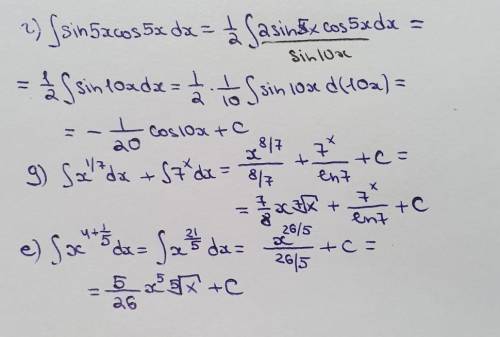 г) ∫sin5xcos5xdx = 1/2 ∫2sin5x cos5xdx =
sin10x
= 1/2 ∫sin10xdx = 1/2 · 1/10 ∫sin10x d(10x) =
= - 1/20 cos10x + C
g) ∫x^(1/7)dx + ∫7^x dx = x^(8/7)/(8/7) + 7^x/ln7 + C =
= 7/8 x ⁷√x + 7^x/ln7 + C
e) ∫x^(4+1/5)dx = ∫x^(21/5)dx = x^(26/5)/(26/5) + C =
= 5/26 x^5 ⁵√x + C